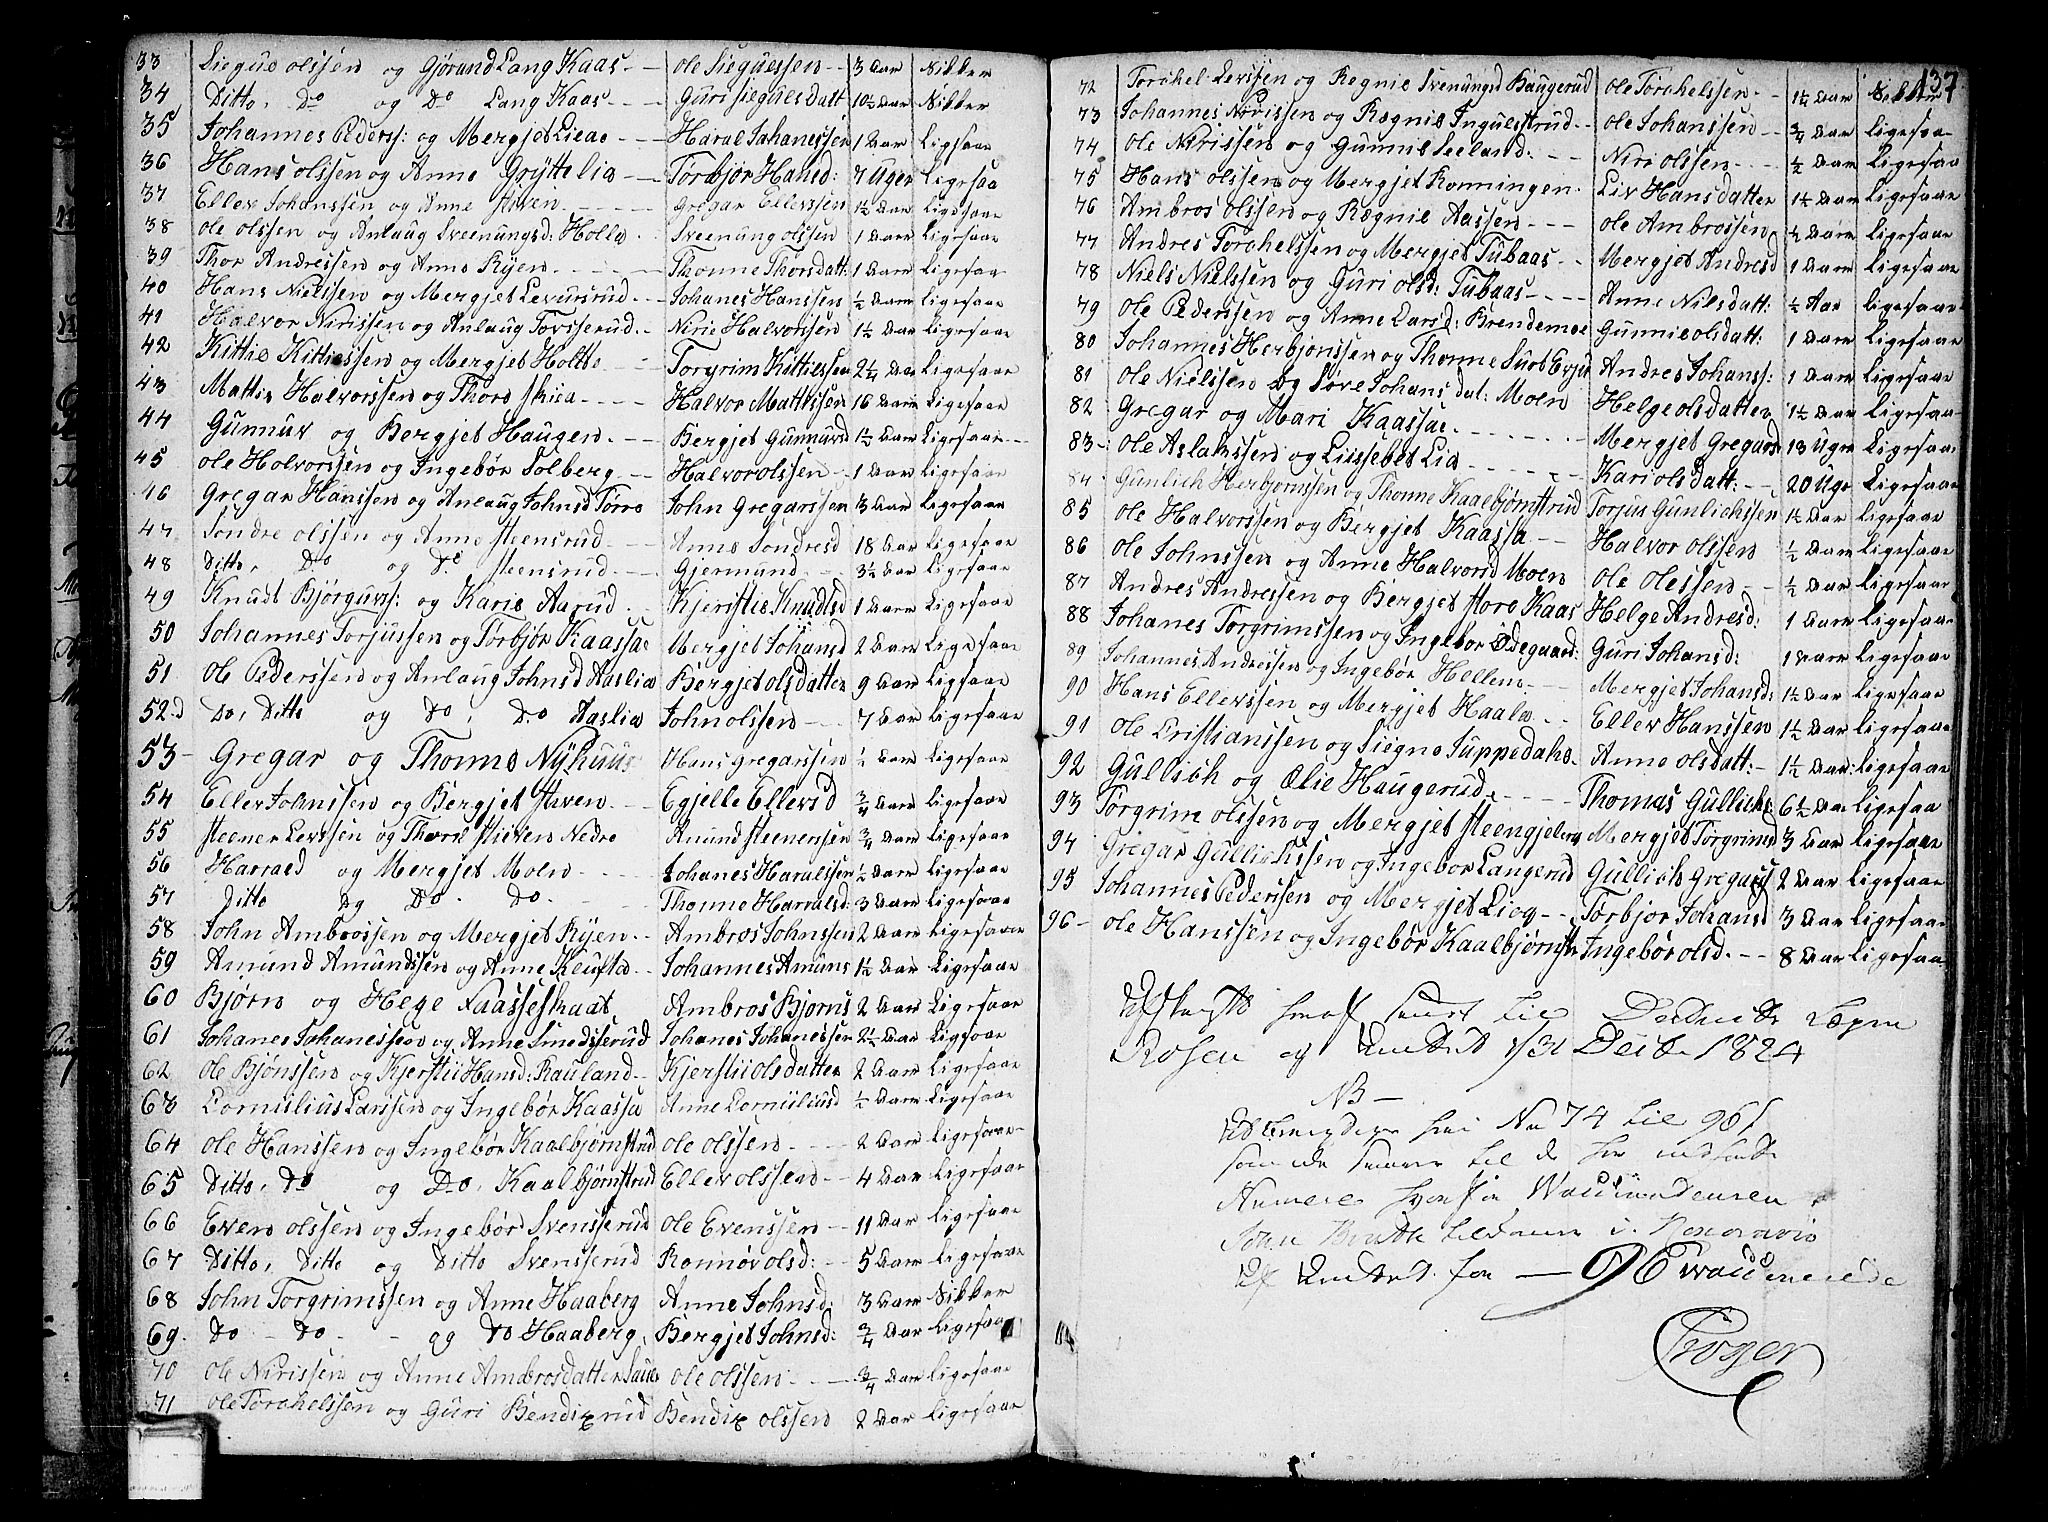 33 Siegus olssen og Gjørund Lang Kaas - ole Sieguessen - 3 Aar Sikker
34 Ditto, Do og Do Lang Kaas - Guri Sieguesdatt 10½ Aar Sikker
35 Johannes Pederss: og Mergjet Lieae - Haral Johanessen 1 Aar Ligsaa
36 Hans olssen og Anne Grýttelia - Torbjør Hansd: 7 Uger Ligesaa
37 Eller Johanssen og Anne Stiven - Gregar Ellerssen 1½ Aar Ligesaa
38 ole olssen og Anlaug Sveenungsd: Holla - Sveenung olssen 1 Aar Ligesaa
39 Thor Andressen og Anne Rýen - Thonne Thorsdatt: 1 Aar Ligesaa
40 Hans Nielssen og Mergjet Levursrud - Johanes Hanssen ½ Aar Ligesaa
41 Halvor Nirissen og Anlaug Torsserud - Nirie Halvorssen 1½ Aar Ligesaa
42 Kittie Kittiessen og Mergjet Holtte - Torgrim Kittiessen 2¼ Aar Ligesaa
43 Mattis Halvorssen og Thore Skiea - Halvor Mattissen 16 Aar Ligesaa
44 Gunnuv og Bergjet Haugen - Bergjet Gunnuvsd 1½ Aar Ligesaa
45 ole Halvorssen og Ingebør Solberg - Halvor olssen - 1 Aar Ligesaa
46 Gregar Hanssen og Anlaug Johnsd Torre John Gregarssen 3 Aar Ligesaa
47 Sondre olssen og Anne Steensrud - Anne Sondresd 18 Aar Ligesaa
48 Ditto, Do og Do Steensrud - Gjermund - 3½ Aar Ligesaa
49 Knudt Bjørguvs: og Karie Aarud - Kjerstie Knudtsd 1 Aar Ligesaa
50 Johannes Torjussen og Torbjør Kaassae Mergjet Johansd 2 Aar Ligesaa
51 Ole Pederssen og Anlaug Johnsd Aaslia Bergjet olsdatter 9 Aar Ligsaa
52 Do, Ditto og Do, Do Aaslia John olssen - 7 Aar Ligesaa
53 - Gregar og Thonne Nýhuus Hans Gregarssen ½ Aar Ligesaa
54 Eller Johnssen og Bergjet Stiven - Egjelle Ellersd ¾ Aar Ligesaa
55 Steener Levssen og Thore Stieven Nedre Amund Steenerssen ¾ Aar Ligesaa
56 Harrald og Mergjet Moen - Johanes Haralssen ½ Aar Ligesaa
57 Ditto og Do. Do. - Thonne Harralsd: 3 Aar Ligesaa
58 John Ambrossen og Mergjet Rýen - Ambros Johnssen 2 Aar Ligesaa
59 Amund Amundssen og Anne Kleufta - Johannes Amuns 1½ Aar Ligesaa
60 Bjørn og Hege Naasseskaat Ambros Bjørns 2 Aar Ligesaa
61 Johanes Johanessen og Anne Smedsserud Johanes Johanessen 2½ Aar Ligesaa
62 ole Bjønssen og Kjerstii Hansd: Rauland - Kjerstii olsdatter 2 Aar Ligesaa
63 Cornilius Larssen og Ingebør Kaassa Anne Corniliusd ½ Aar Ligesaa
64 ole Hanssen og Ingebør Kaalbjørnstrud ole olssen - 2 Aar Ligesaa
65 Ditto, Do og Do, Kaalbjørnstrud Eller olssen - 4 Aar Ligesaa
66 Even olssen og Ingebør Svensserud ole Evenssen - 11 Aar Ligesaa
67 Ditto, Ditto og Ditto Svensserud Ronnøv olsd: - 5 Aar Ligesaa
68 John Torgrimssen og Anne Haaberg Anne Johnsd: 3 Aar Sikker
69. Do - Do - og Do Haaberg, Bergjet Johnsd: ¾ Aar Ligesaa
70 ole Nirissen og Anne Ambrosdatter ole olssen - ¾ Aar Ligesaa
71 ole Torchelssen og Guri Bendixrud Bendix olssen 2 Aar Ligesaa
137
72 Torchel Levssen og Rognie Svenungsd Haugerud ole Torchelssen - 1½ Aar Sikker
73 Johannes Nirissen og Rægnie Inguelstrud - ole Johanssen - ¾ Aar Ligesaa
74 ole Nirissen og Gunnil Leeland: - Niri olssen - ½ Aar Ligesaa
75 Hans olssen og Mergjet Ronningen - Liv Hansdatter 1½ Aar Ligesaa
76 Ambros olssen og Rægnie Aassen - ole Ambrossen ½ Aar Ligesaa
77 Andres Torchelssen og Mergjet Tubaas - Mergjet Andresd 1 Aar Ligesaa
78 Niels Nielssen og Guri olsd: Tubaas - Anne Nilsdatt: ½ Aar Ligesaa
79 ole Pederssen og Anne Larsd: Brendemoe Gunnie olsdatt: 1 Aar Ligesaa
80 Johannes Herbjonssen og Thonne Evju Andres Johanss: 1 Aar Ligesaa
81 ole Nielssen og Søve Johansdat: Moen Helge olsdatter 1½ Aar Ligesaa
82 Gregar og Mari Kaassae - Mergjet Gregarsd 13 Uger Ligesaa
83 - ole Aslakssen og Liissebet Lia - Kari olsdatt: - 20 Uge Ligesaa
84 Gunlich Herbjørnssen og Thonne Kaalbjørnstrud Torjus Gunlichssen 1½ Aar Ligesaa
85 ole Halvorssen og Bergjet Kaassa - Halvor olssen ½ Aar Ligesaa
86 ole Johnssen og Anne Halvorsd Moen ole olessen - ½ Aar Ligesaa
87 Andres Andressen og Bergjet Store Kaas Helge Andresd: 1 Aar Ligesaa
88 Johanes Torgrimssen og Ingebor Ødegaard: Guri Johansd: 1 Aar Ligesaa
89 Johannes Andressen og Ingebør Hellem - Mergjet Johansd: 1½ Aar Ligesaa
90 Hans Ellerssen og Mergjet Haala - Eller Hanssen 1½ Aar Ligesaa
91 ole Cristianssen og Siegne Juppedahe - Anne olsdatt: - 1½ Aar: Ligesaa
92 Gullich og Ælie Haugerud. - Thomas Gullichs 6½ Aar Ligesaa
93 Torgrim olssen og Mergjet Steengjelberg Mergjet Torgrimsd 3 Aar Ligesaa
94 Gregar Gullichssen og Ingebor Langerud Gullich Gregarss 2 Aar Ligesaa
95 Johannes Pederssen og Mergjet Lieg - Torbjor Johansd 3 Aar Ligesaa
96 - ole Hanssen og Ingebør Kaalbjørnstr Ingebør olsd. - 8 Aar Ligesaa
til
Rosen og 1824
NB -
No 74 til 96
som til de
i
for - 96
Krøger